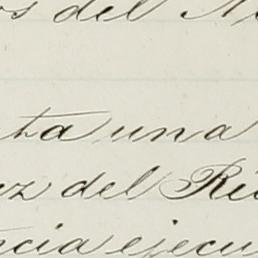 os del
ta una
ez del Ri
ncia ejecu